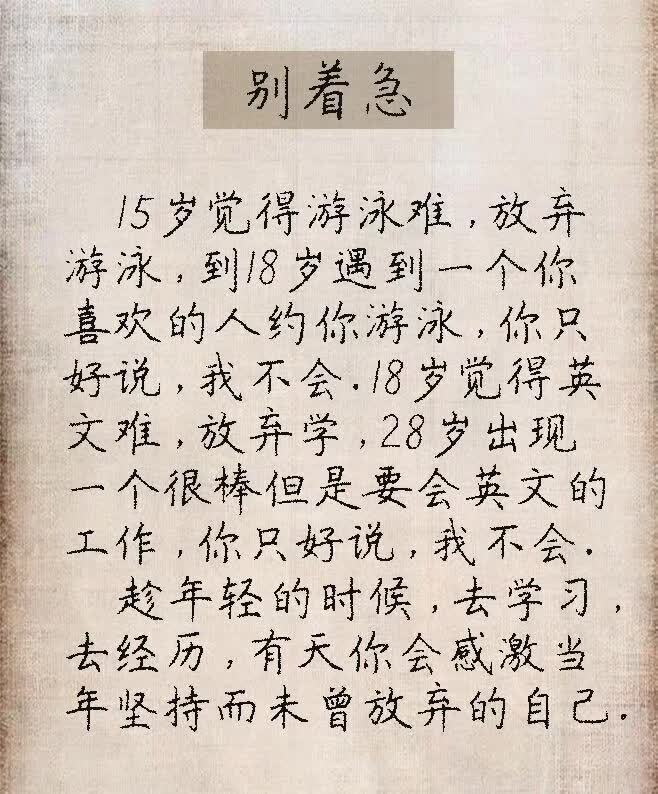 别着急
15岁觉得游泳难,放弃
游泳,到18岁遇到一个你
喜欢的人约你游泳,你只
好说,我不会.18岁觉得英
文难,放弃学,28岁出现
一个很棒但是要会英文的
工作,你只好说,我不会.
趁年轻的时候,去学习,
去经历,有天你会感激当
年坚持而未曾放弃的自己.